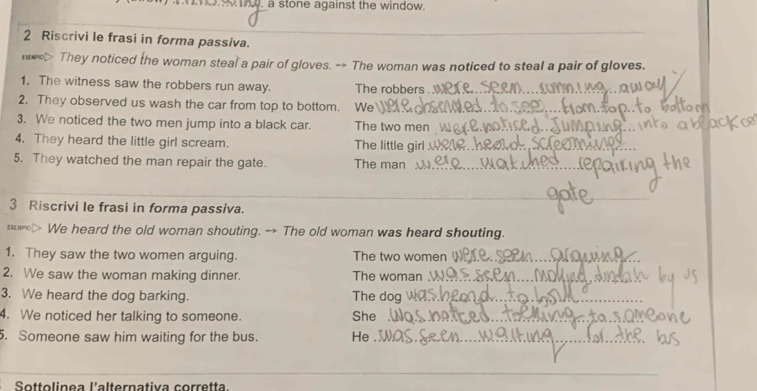 a stone against the window.
2 Riscrivi le frasi in forma passiva.
ESEMPIO They noticed the woman steal a pair of gloves. → The woman was noticed to steal a pair of gloves.
1. The witness saw the robbers run away. The robbers were seen running away
2. They observed us wash the car from top to bottom. We were observed to see from top to bottom
3. We noticed the two men jump into a black car. The two men were noticed jumping into a black car
4. They heard the little girl scream. The little girl were heard screeming
5. They watched the man repair the gate. The man were watched repairing the
gate
3 Riscrivi le frasi in forma passiva.
ESEMPIO We heard the old woman shouting. → The old woman was heard shouting.
1. They saw the two women arguing. The two women were seen arguing
2. We saw the woman making dinner. The woman was seen making by us
3. We heard the dog barking. The dog was heard to
4. We noticed her talking to someone. She was noticed to someone
5. Someone saw him waiting for the bus. He was seen waiting for the bus
Sottolinea l'alternativa corretta.